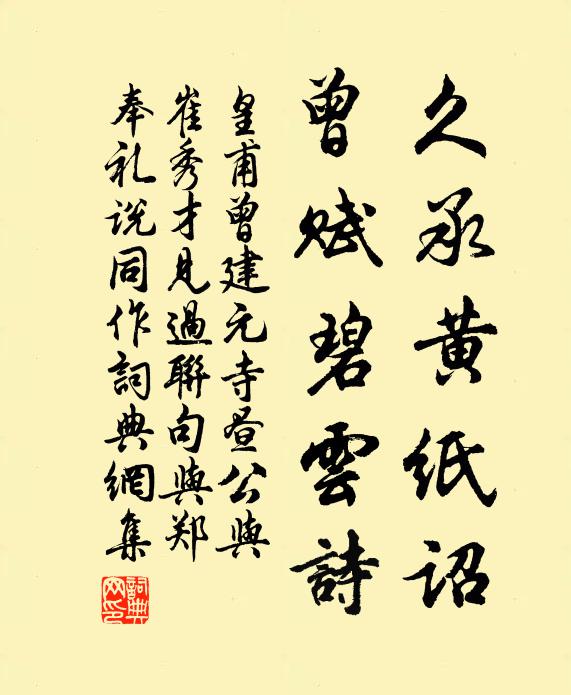 久承黄纸诏
曾赋碧雲詩
皇甫曾建元寺昼公與
崔秀才見過聯句與郑
奉礼说同作詞典網集
詞典
网印